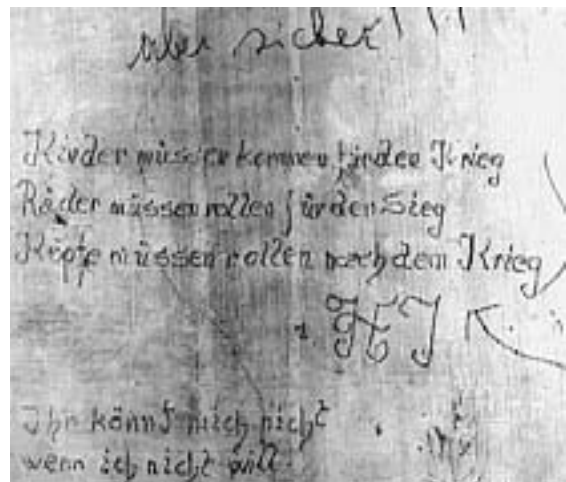 Aber sicher !!!
Kinder müssen kommen für den Krieg
Räder müssen rollen für den Sieg
Köpfe müssen rollen nach dem Krieg
HJ
Ihr könnt mich nicht
wenn ich nicht will.